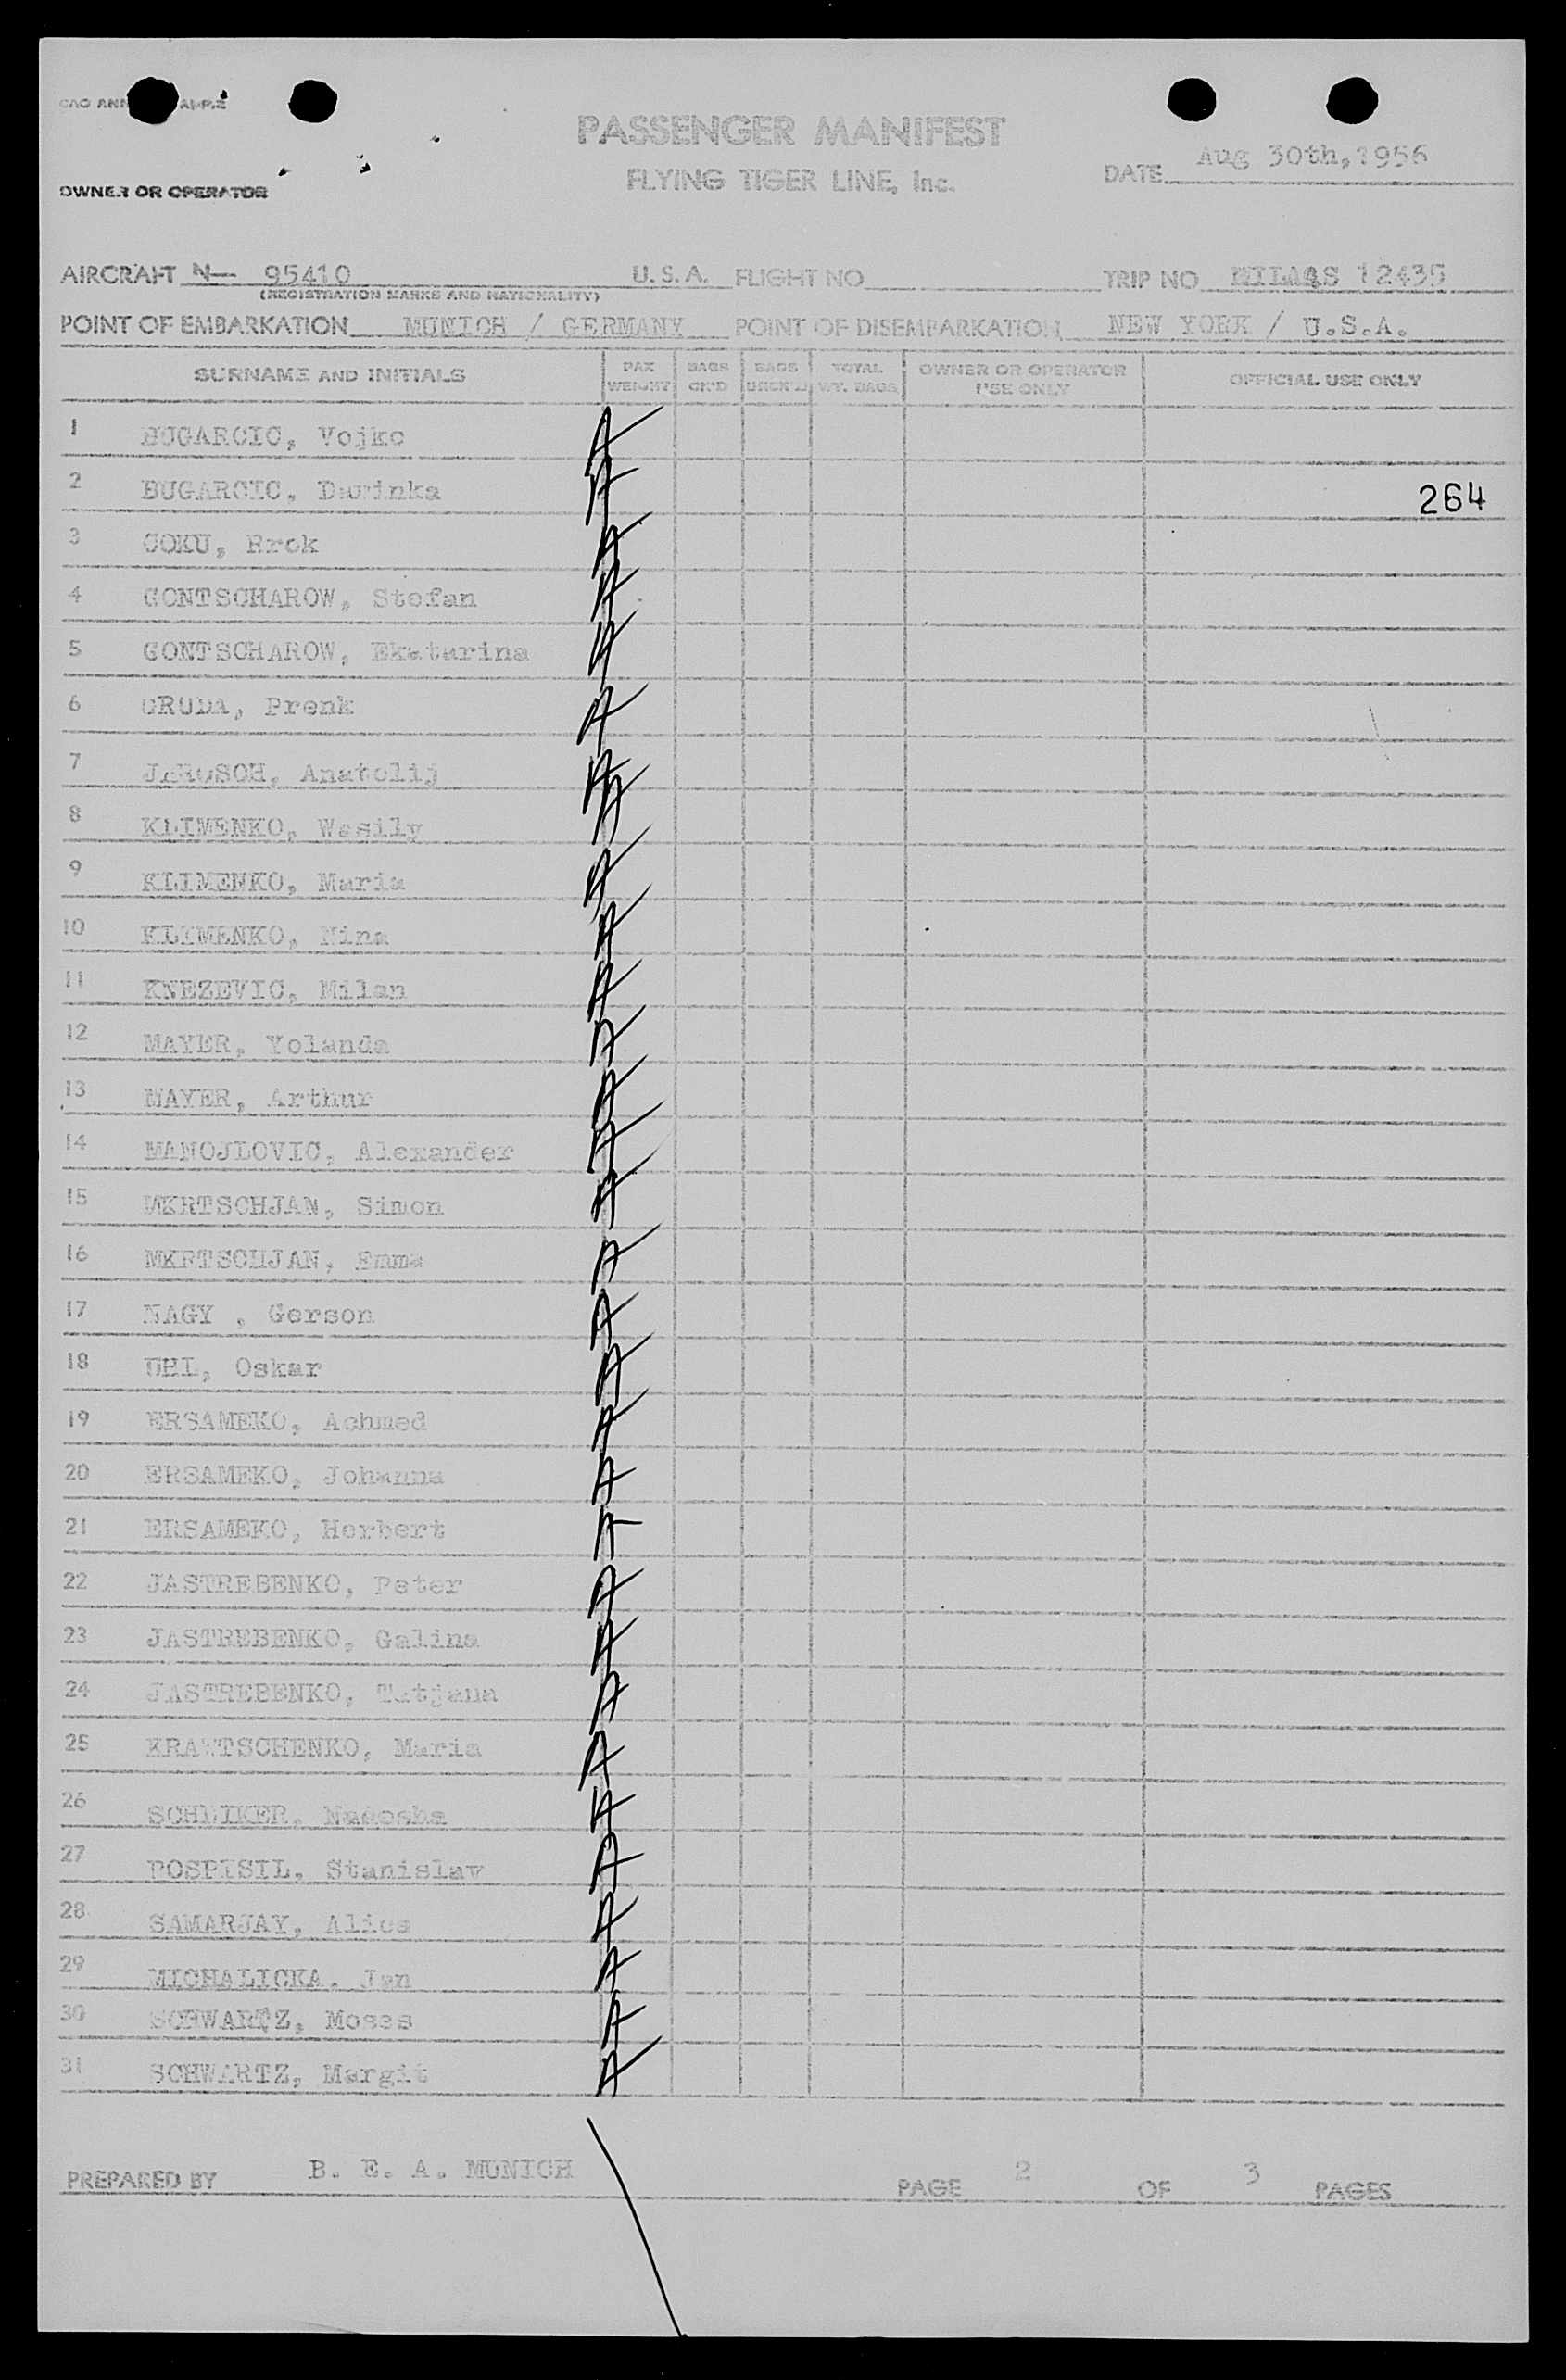 PASSENGER MANIFEST
FLYING TIGER LINE, Inc.
DATE Aug 30th, 1956
OWNER OR OPERATOR
AIRCRAFT N— 95410 U.S.A. FLIGHT NO TRIP NO 12435
(REGISTRATION MARKS AND NATIONALITY)
POINT OF EMBARKATION MUNICH / GERMANY POINT OF DISEMBARKATION NEW YORK / U.S.A.
SURNAME AND INITIALS PAX WEIGHT BAGS CK'D BAGS UNCK'D TOTAL WT. BAGS OWNER OR OPERATOR USE ONLY OFFICIAL USE ONLY
1 BUGARCIC, Vojko A
2 BUGARCIC, Darinka A 264
3 COKU, Rrok A
4 GONTSCHAROW, Stefan A
5 GONTSCHAROW, Ekatarina A
6 GRUDA, Prenk A
7 JAROSCH, Anatolij A
8 KLIMENKO, Wasily A
9 KLIMENKO, Maria A
10 KLIMENKO, Nina A
11 KNEZEVIC, Milan A
12 MAYER, Yolanda A
13 MAYER, Arthur A
14 MANOJLOVIC, Alexander A
15 MKRTSCHJAN, Simon A
16 MKRTSCHJAN, Emma A
17 NAGY , Gerson A
18 UHL, Oskar A
19 ERSAMEKO, Achmed A
20 ERSAMEKO, Johanna A
21 ERSAMEKO, Herbert A
22 JASTREBENKO, Peter A
23 JASTREBENKO, Galina A
24 JASTREBENKO, Tatjana A
25 KRAWTSCHENKO, Maria A
26 SCHLIKER, Nadesha A
27 POSPISIL, Stanislav A
28 SAMARJAY, Alice A
29 MICHALICKA, Jan A
30 SCHWARTZ, Moses A
31 SCHWARTZ, Margit A
PREPARED BY B. E. A. MUNICH PAGE 2 OF 3 PAGES